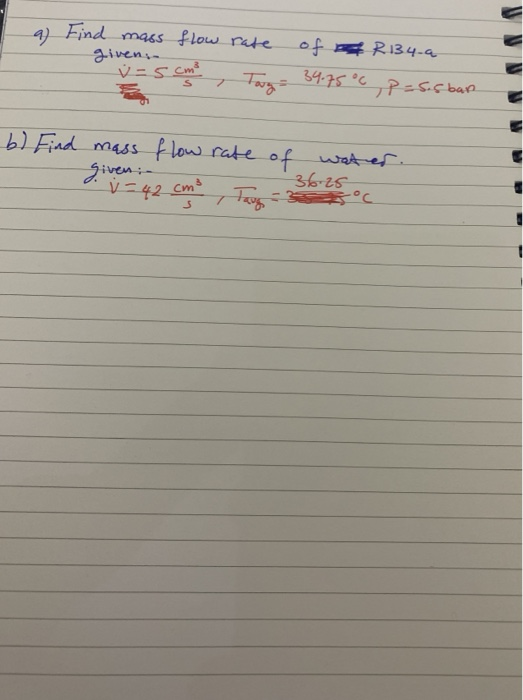 a) Find mass flow rate of R134-a
given:-
V̇ = 5 cm³/s , Tavg = 34.75 °C , P = 5.5 bar
b) Find mass flow rate of water.
given:-
V̇ = 42 cm³/s , Tavg = 36.25 °C